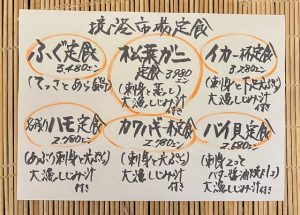 境港市場定食
ふぐ定食
3,480エン
(てっさとあら鍋)
松葉ガニ
定食 3980エン
(刺身と蒸し)
大漁しじみ汁
付き
イカ一杯定食
3,280エン
(刺身と下足天ぷら)
大漁しじみ汁
付き
名残りハモ定食
2,980エン
(あぶり刺身と天ぷら)
大漁しじみ汁
付き
カワハギ一本定食
2,980エン
(刺身と天ぷら)
大漁しじみ汁
付き
バイ貝定食
2,680エン
(刺身2コと
バター醤油焼き
大漁しじみ汁
付き